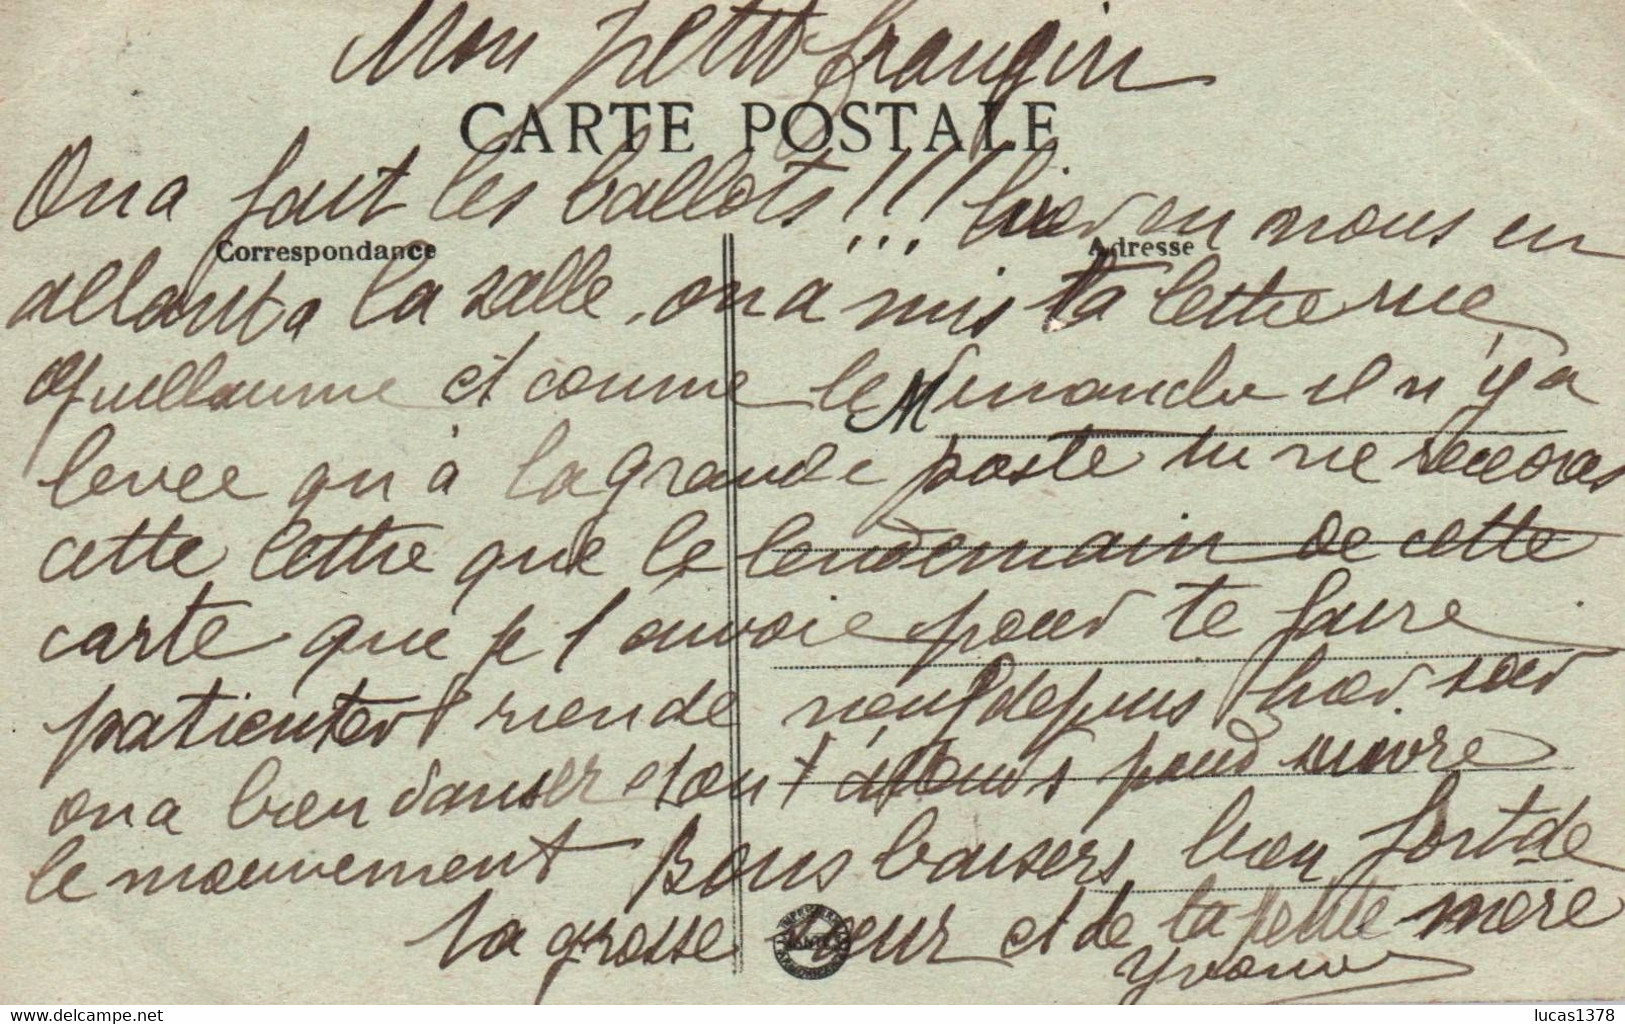 Mon petit frangin
CARTE POSTALE
On a fait les ballots !!! hier en nous en
Correspondance
Adresse
allant a la salle, on a mis ta lettre rue
Guillaume et comme le Dimanche il n'y a
M
levee qu'à la grande poste tu ne recevras
cette lettre que le lendemain de cette
carte que je t'envoie pour te faire
patienter rien de neuf depuis hier soir
on a bien danser et on t attends pour suivre
le mouvement Bons baisers bien fort de
ta grosse sœur et de ta petite mere
Yvonne
lucas1378